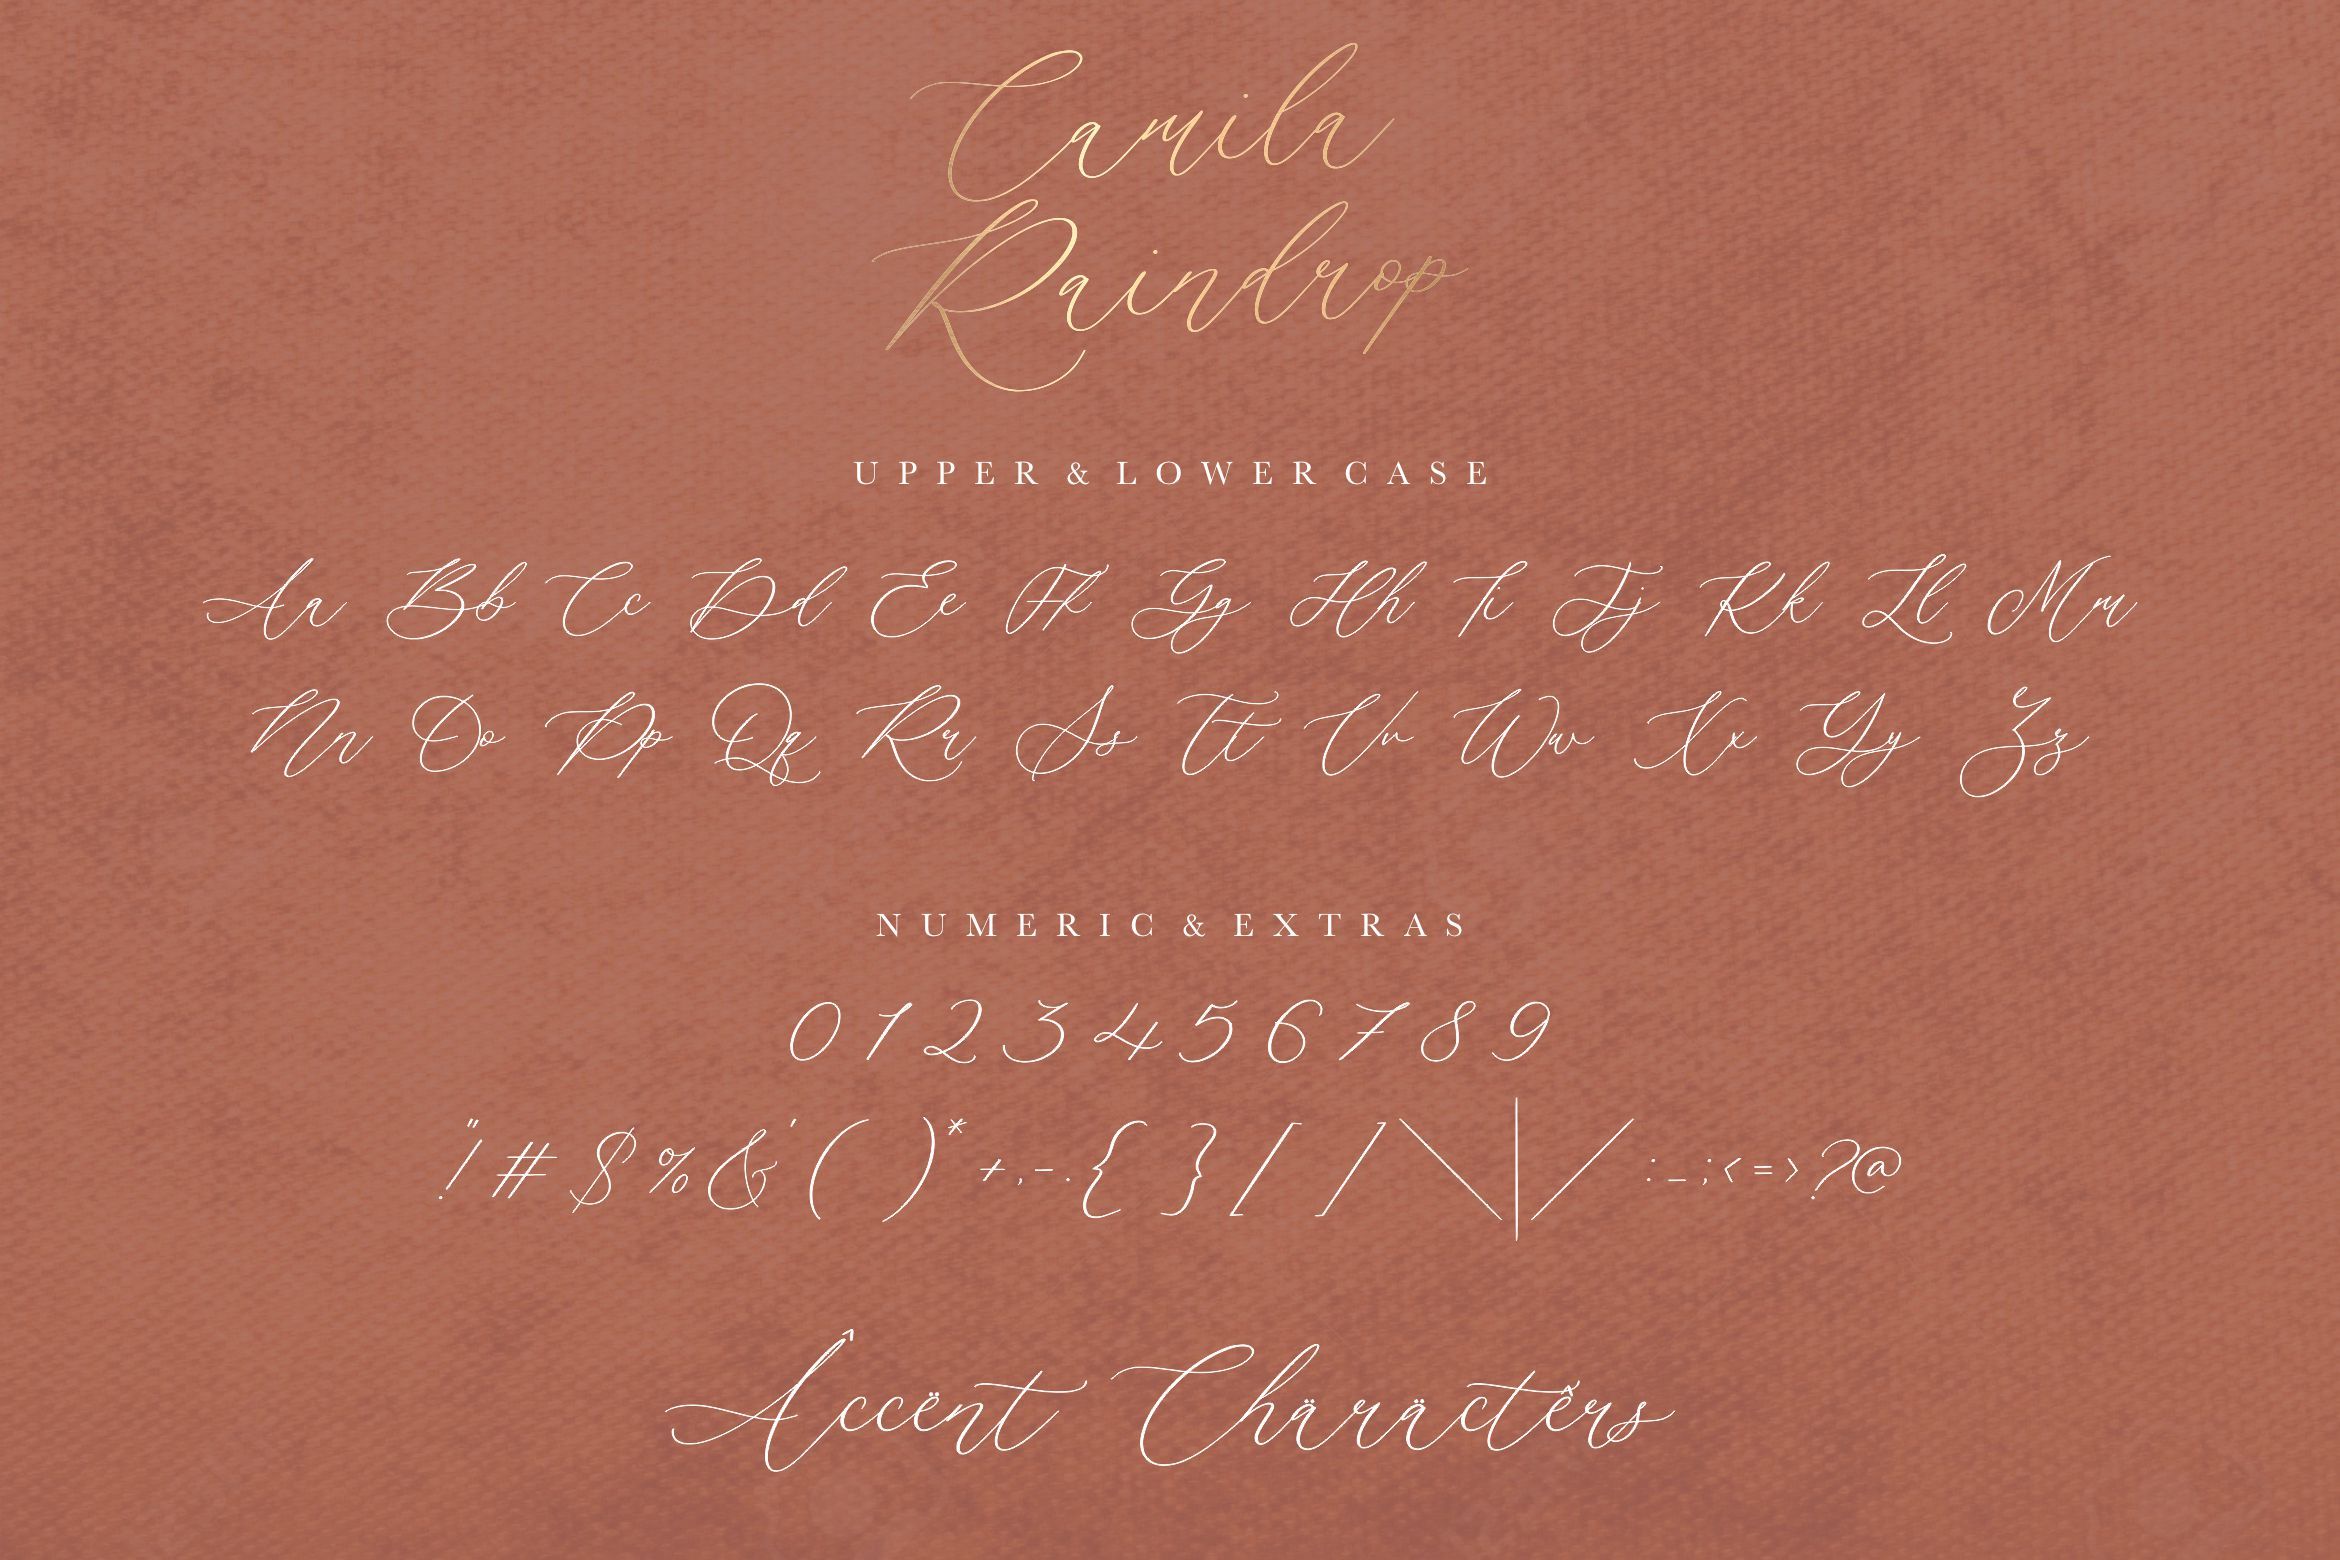 Camila
Raindrop
UPPER & LOWERCASE
Aa Bb Cc Dd Ee Ff Gg Hh Ii Jj Kk Ll Mm
Nn Oo Pp Qq Rr Ss Tt Uu Vv Ww Xx Yy Zz
NUMERIC & EXTRAS
0 1 2 3 4 5 6 7 8 9
! " # $ % & ' ( ) * + , - . { } [ ] \ | / : _ ; < = > ? @
Âccënt Chäräctêrs